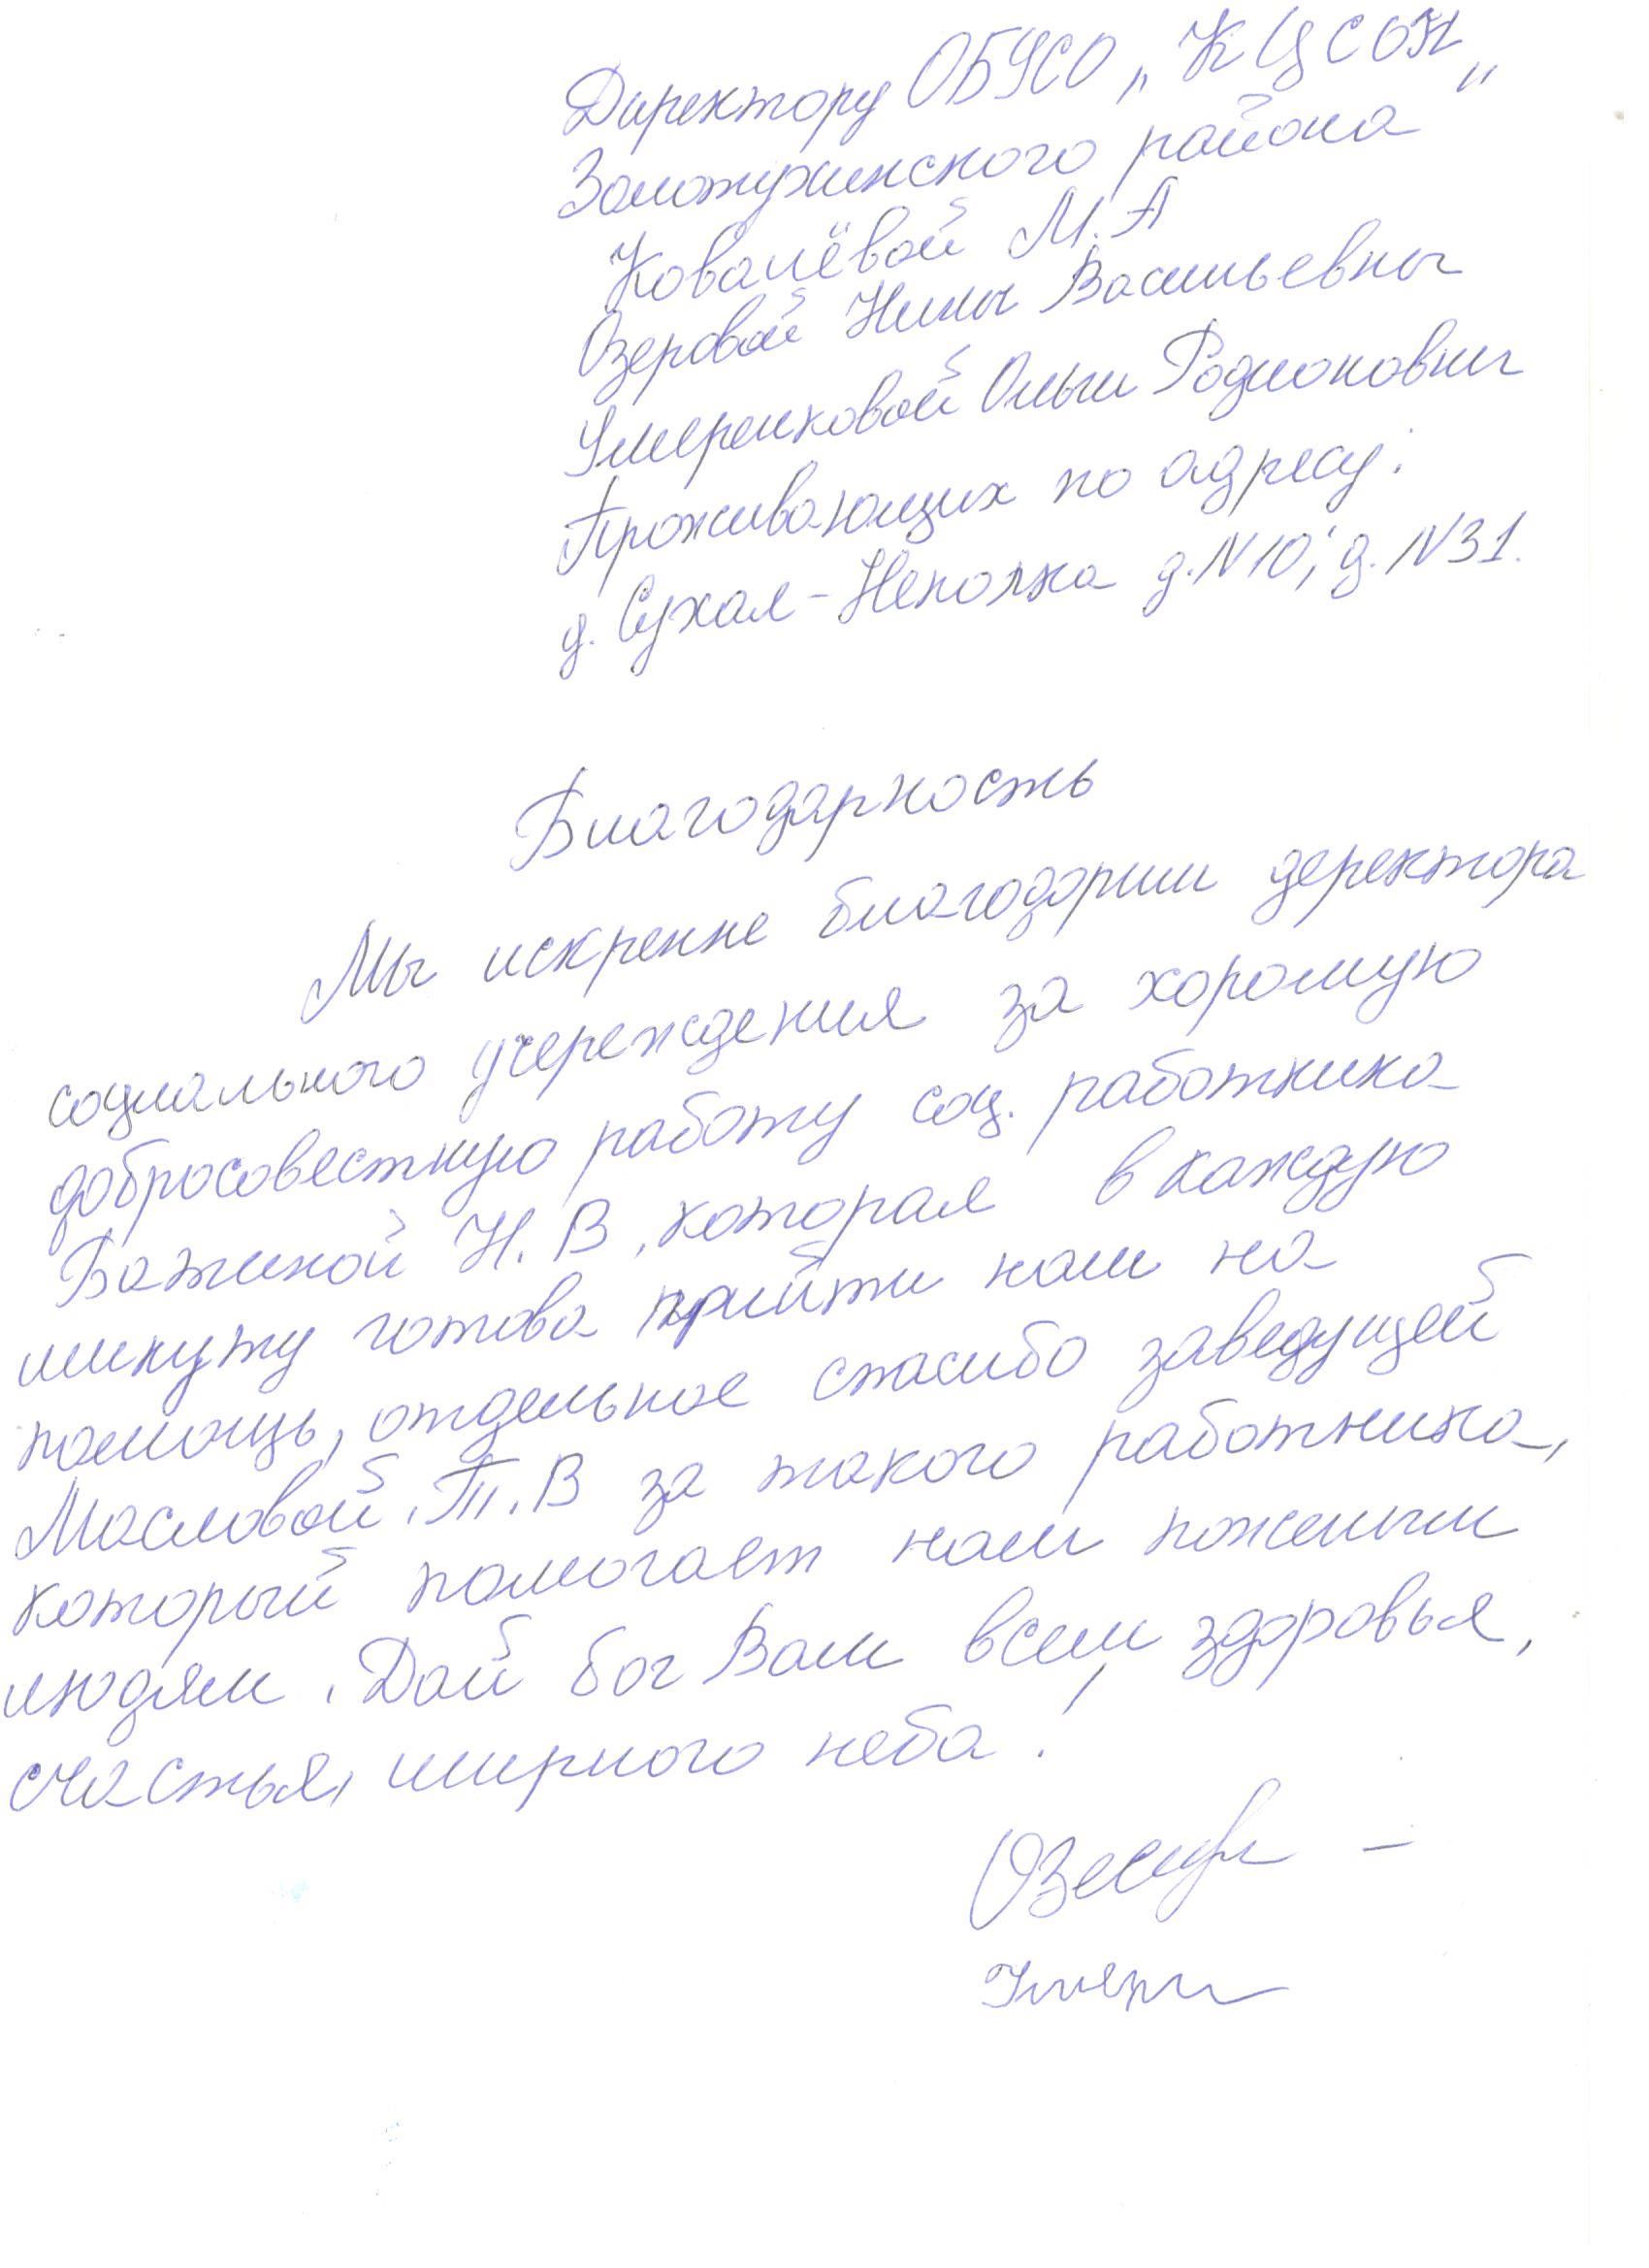 Директору ОБУСО „КЦСОН"
Золотухинского района
Ковалёвой М.А
Озеровой Нины Васильевны
Умеренковой Ольги Родионовны
Проживающих по адресу:
д. Сухая-Неполка д.N10; д.N31.
Благодарность
Мы искренне благодорим деректора
социального учереждения за хорошую
добросовестную работу соц. работника
Бажиной Н.В, которая в каждую
минуту готова прийти нам на
помощь, отдельное спасибо заведущей
Масловой.Т.В за такого работника,
который помогает нам пожилым
людям. Дай бог Вам всем здоровья,
счастья, мирного неба!